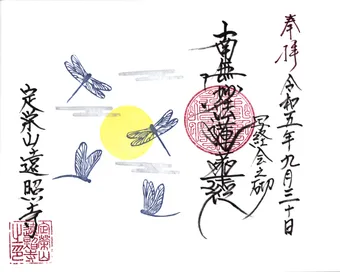 奉拝
令和五年九月三十日
写経会之砌
南無妙法蓮華経
定栄山遠照寺